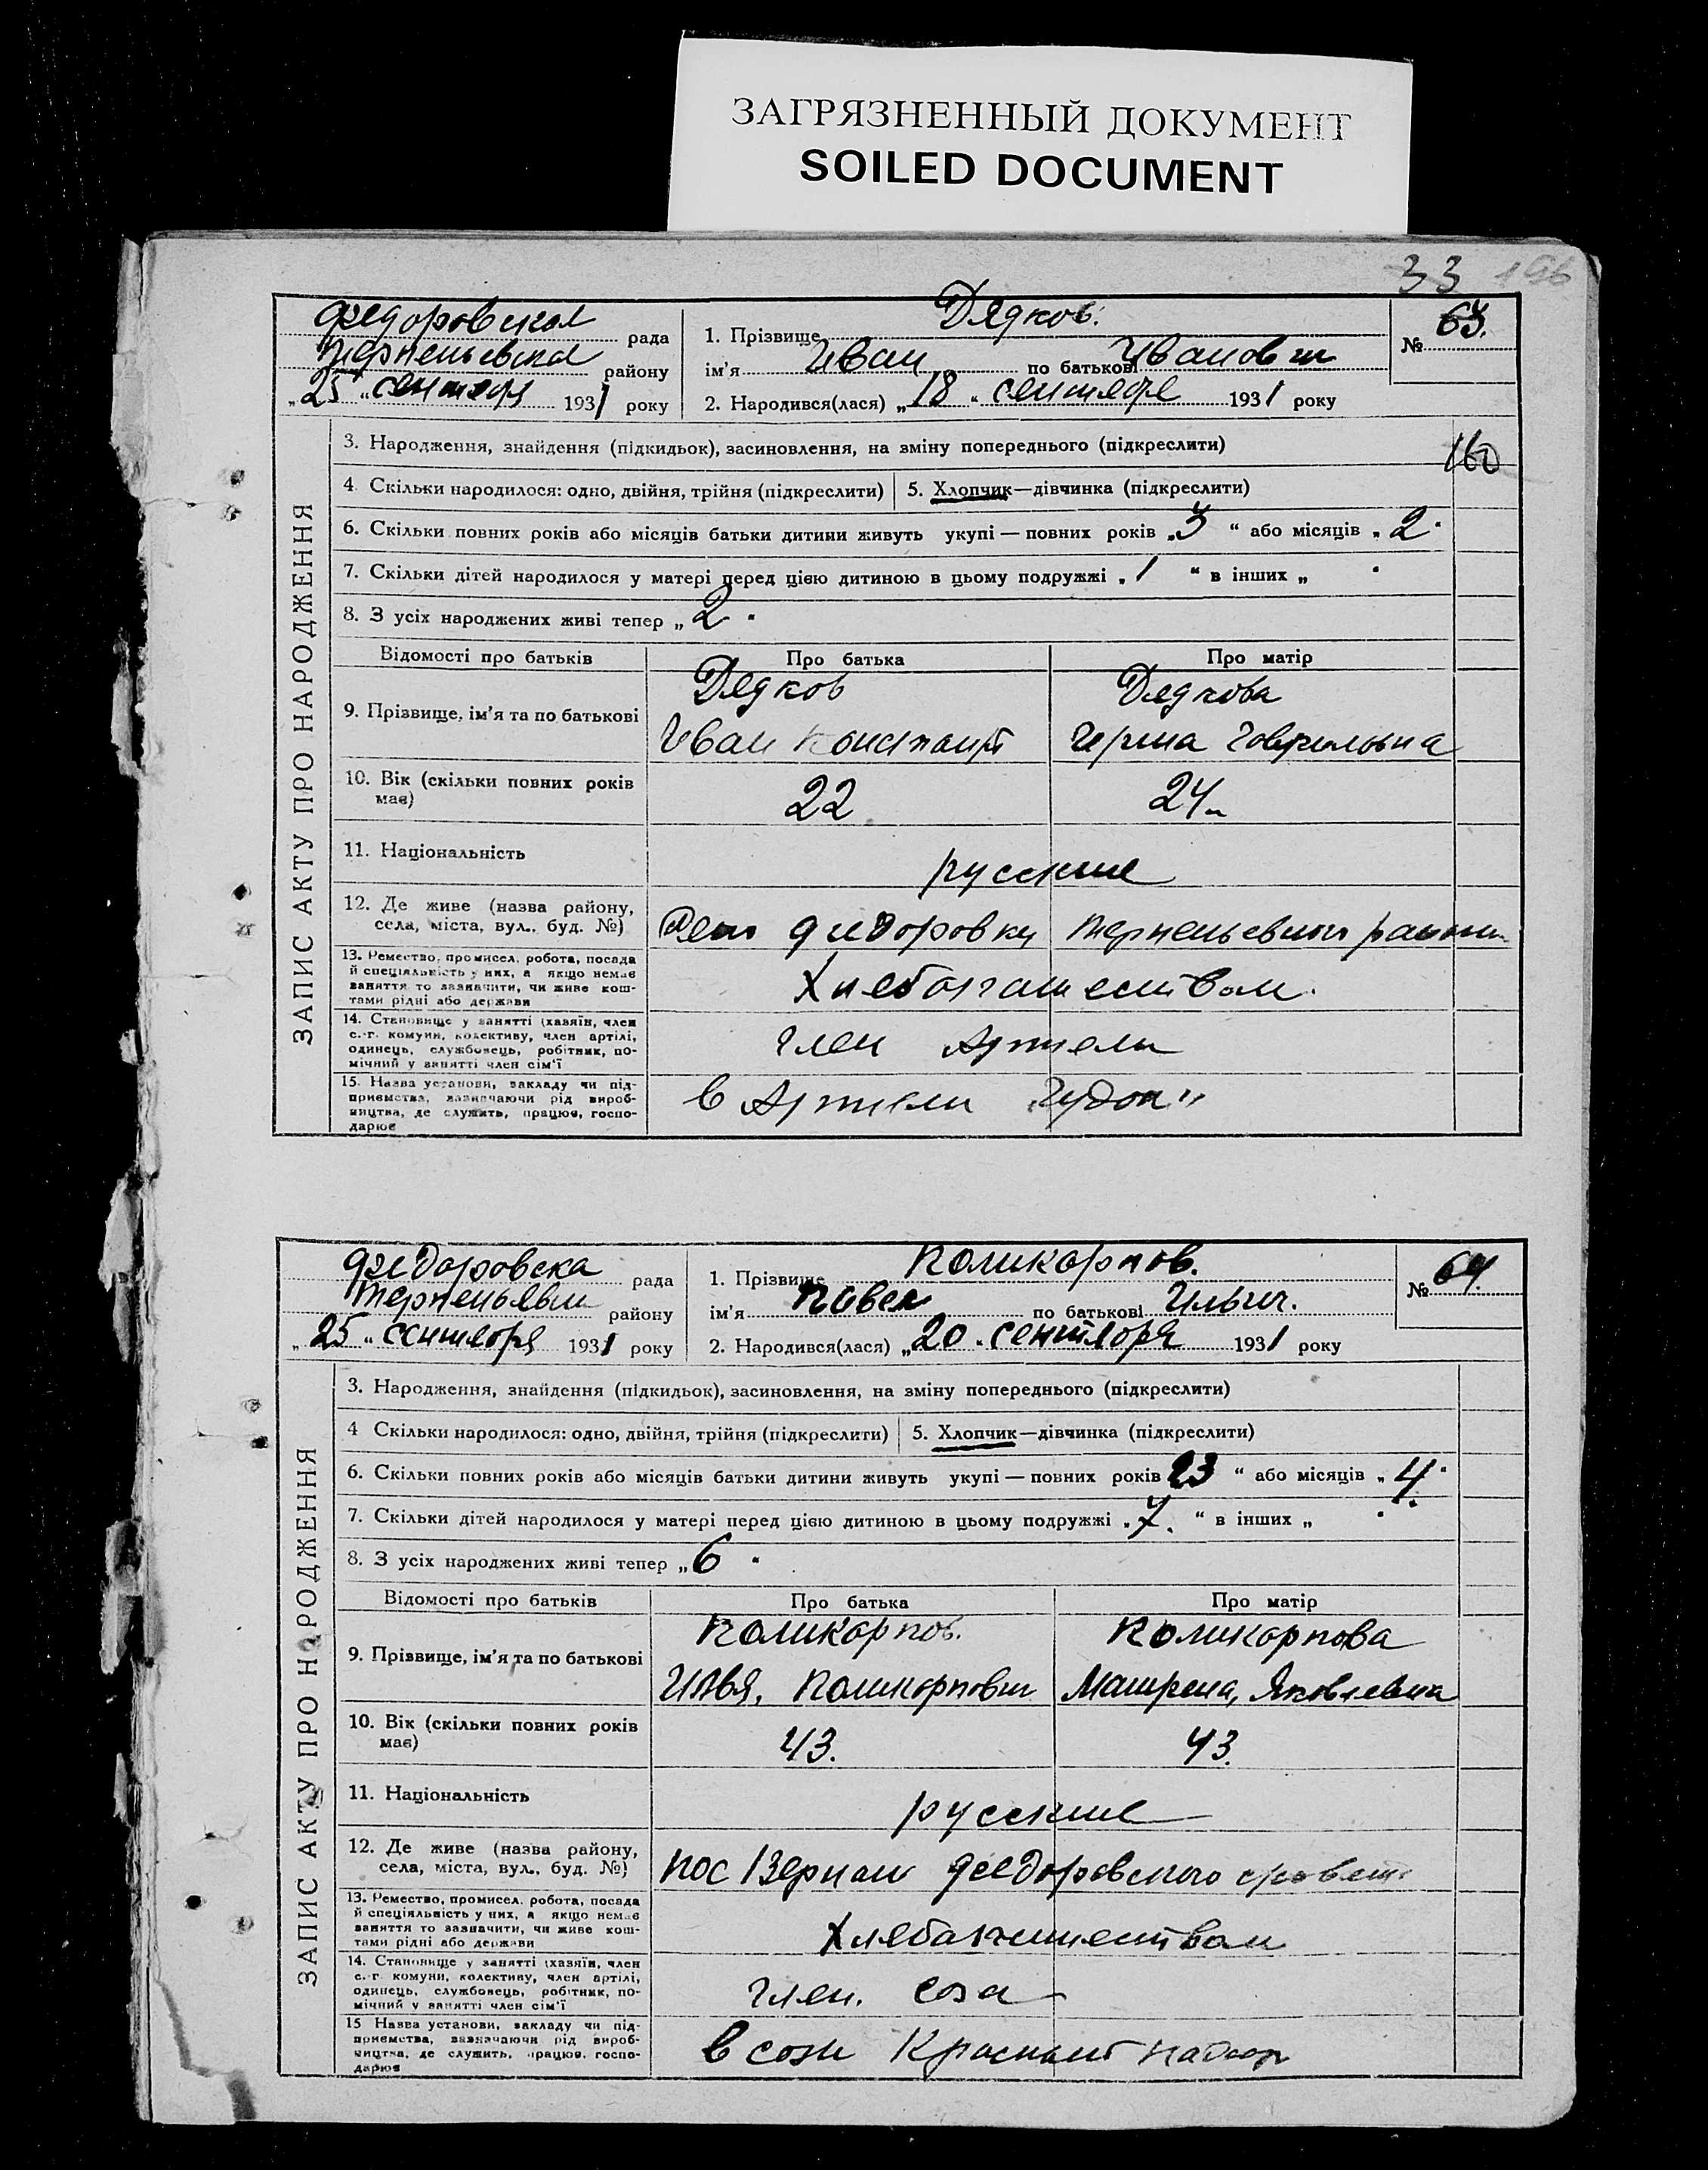 ЗАГРЯЗНЕННЫЙ ДОКУМЕНТ
SOILED DOCUMENT
33
ЗАПИС АКТУ ПРО НАРОДЖЕННЯ
Федоровская рада
Терпеньевская району
„25“ сентября 1931 року
1. Прізвище Дядков.
ім'я Иван по батькові Иванович
№ 63.
2. Народився(лася) „18“ сентября 1931 року
3. Народження, знайдення (підкидьок), засиновлення, на зміну попереднього (підкреслити)
160
4 Скільки народилося: одно, двійня, трійня (підкреслити)
5. Хлопчик—дівчинка (підкреслити)
6. Скільки повних років або місяців батьки дитини живуть укупі — повних років „3“ або місяців „2“
7. Скільки дітей народилося у матері перед цією дитиною в цьому подружжі „1“ в інших „ “
8. З усіх народжених живі тепер „2“
Відомості про батьків Про батька Про матір
9. Прізвище, ім'я та по батькові
Дядков Дядкова
Иван Гаврильовна
10. Вік (скільки повних років має)
22 24
11. Національність
русские
12. Де живе (назва району, села, міста, вул., буд. №)
Село Федоровки Терпеньевского района
13. Ремество, промисел, робота, посада
й спеціяльність у них, а якщо немає
заняття то зазначити, чи живе кош-
тами рідні або держави
Хлебопашеством.
14. Становище у занятті (хазяїн, член
с.-г. комуни, колективу, член артілі,
одинець, службовець, робітник, по-
мічний у занятті член сім'ї
член Артели
15. Назва установи, закладу чи під-
приємства, зазначаючи рід вироб-
ництва, де служить, працює, госпо-
дарює
в Артели
ЗАПИС АКТУ ПРО НАРОДЖЕННЯ
Федоровска рада
району
„25“ сентября 1931 року
1. Прізвище Поликарпов.
ім'я Павел по батькові Ильич.
№ 64.
2. Народився(лася) „20“ сентября 1931 року
3. Народження, знайдення (підкидьок), засиновлення, на зміну попереднього (підкреслити)
4 Скільки народилося: одно, двійня, трійня (підкреслити)
5. Хлопчик—дівчинка (підкреслити)
6. Скільки повних років або місяців батьки дитини живуть укупі — повних років 23 “ або місяців „4“
7. Скільки дітей народилося у матері перед цією дитиною в цьому подружжі „7.“ в інших „ “
8. З усіх народжених живі тепер „6“
Відомості про батьків Про батька Про матір
9. Прізвище, ім'я та по батькові
Поликарпов. Поликарпова
Илья. Поликарпович Матрена, Яковлевна
10. Вік (скільки повних років має)
43. 43.
11. Національність
русские
12. Де живе (назва району, села, міста, вул., буд. №)
пос Федоровского
13. Ремество, промисел, робота, посада
й спеціяльність у них, а якщо немає
заняття то зазначити, чи живе кош-
тами рідні або держави
Хлебопашеством
14. Становище у занятті (хазяїн, член
с.-г. комуни, колективу, член артілі,
одинець, службовець, робітник, по-
мічний у занятті член сім'ї
член. соза
15 Назва установи, закладу чи під-
приємства, зазначаючи рід вироб-
ництва, де служить, працює, госпо-
дарює
в сози